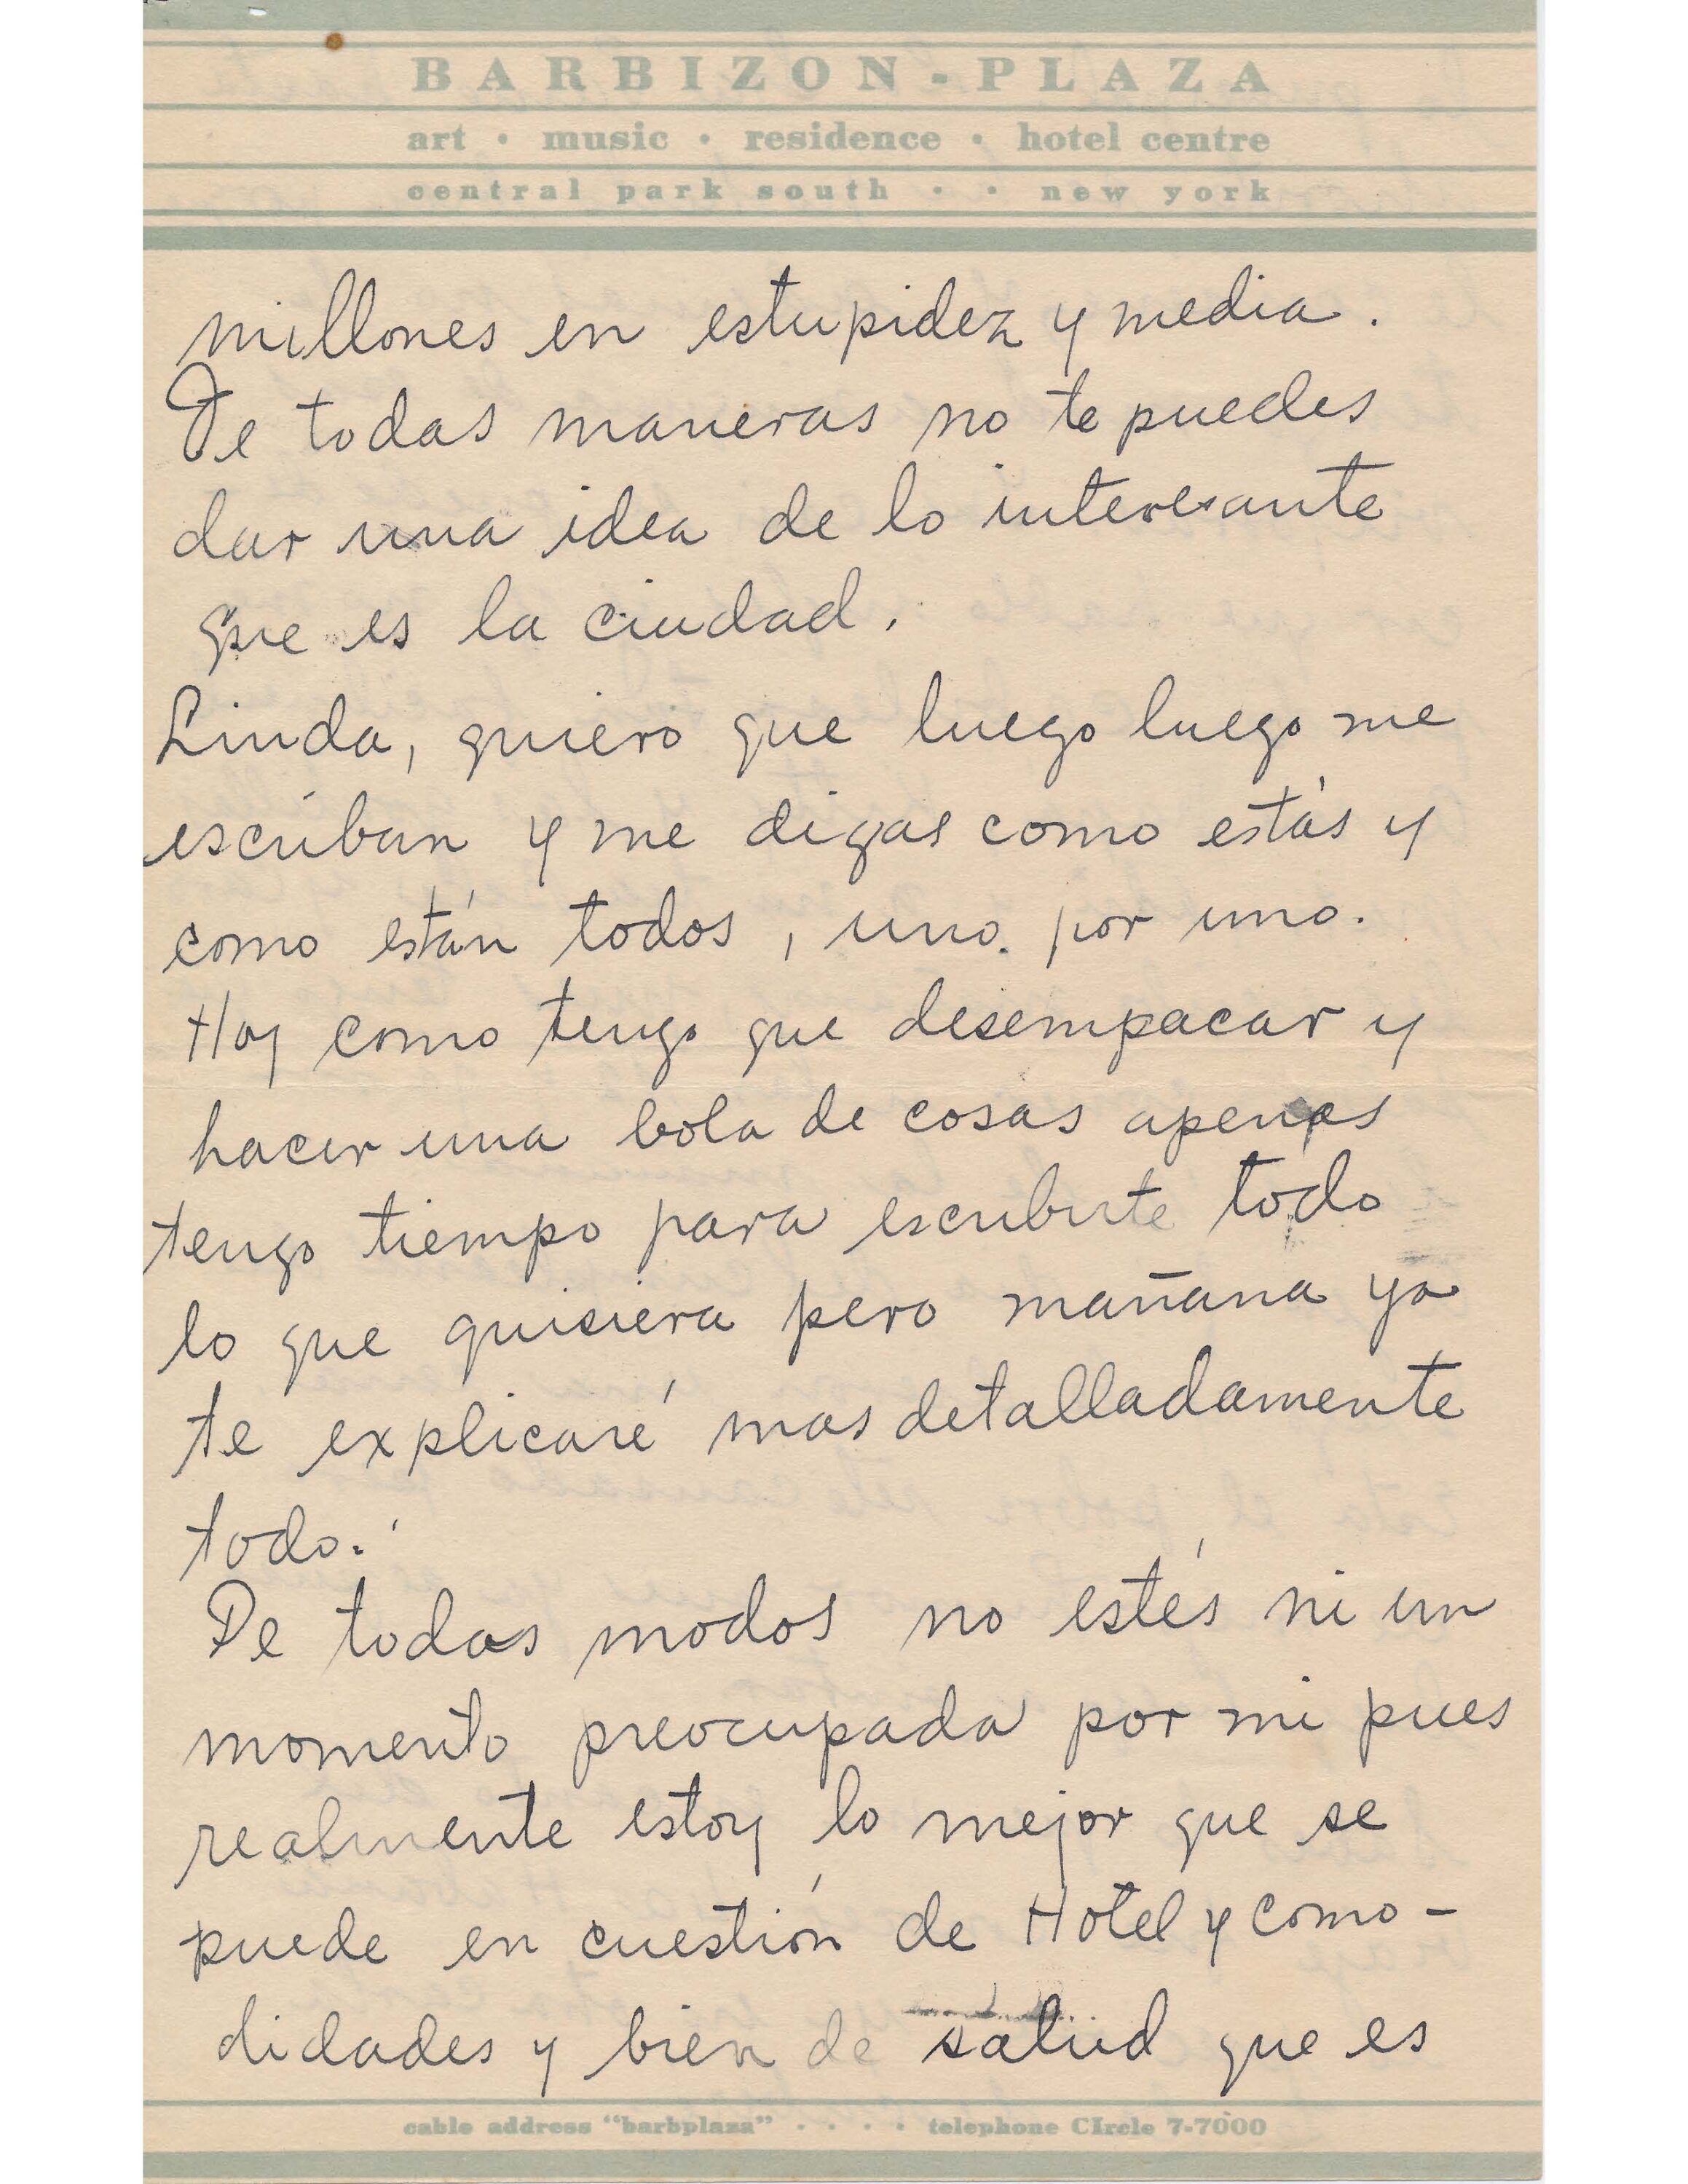 BARBIZON-PLAZA
art • music • residence • hotel centre
central park south • • new york
millones en estupidez y media.
De todas maneras no te puedes
dar una idea de lo interesante
que es la ciudad.
Linda, quiero que luego luego me
escriban y me digas como estás y
como están todos, uno por uno.
Hoy como tengo que desempacar y
hacer una bola de cosas apenas
tengo tiempo para escribirte todo
lo que quisiera pero mañana ya
te explicaré mas detalladamente
todo.
De todos modos no estés ni un
momento preocupada por mi pues
realmente estoy lo mejor que se
puede en cuestión de Hotel y como-
didades y bien de salud que es
cable address "barbplaza" • • • • telephone CIrcle 7-7000